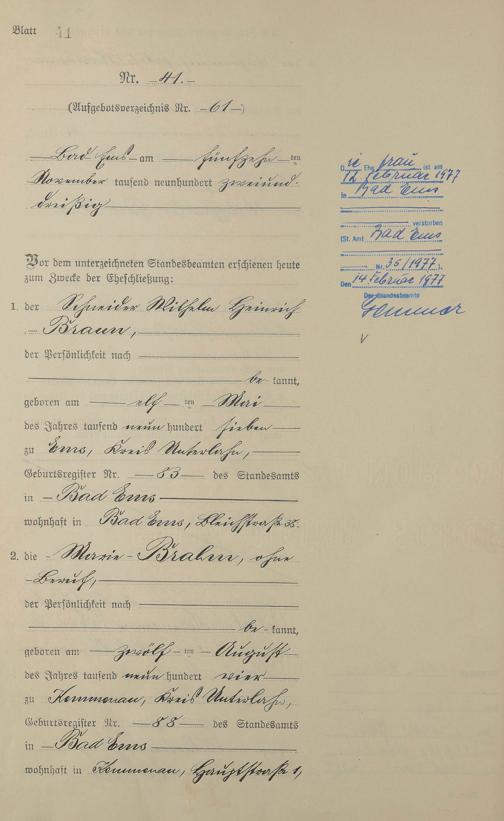 Blatt 41
Nr. 41.
(Aufgebotsverzeichnis Nr. 61)
Bad Ems am fünfzehn ten
November tausend neunhundert zweiund-
dreißig
Vor dem unterzeichneten Standesbeamten erschienen heute
zum Zwecke der Eheschließung:
1. der Schneider Wilhelm Heinrich
Braun,
der Persönlichkeit nach
be kannt,
geboren am elf ten Mai
des Jahres tausend neun hundert sieben
zu Ems, Kreis Unterlahn,
Geburtsregister Nr. 83 des Standesamts
in Bad Ems
wohnhaft in Bad Ems, Bleichstraße 35.
2. die Marie Bralm, ohne
Beruf,
der Persönlichkeit nach
be kannt,
geboren am zwölf ten August
des Jahres tausend neun hundert vier
zu Kemmenau, Kreis Unterlahn,
Geburtsregister Nr. 88 des Standesamts
in Bad Ems
wohnhaft in Kemmenau, Hauptstraße 1,
Die Ehefrau ist am
12. Februar 1977
in Bad Ems
verstorben
(St. Amt Bad Ems
Nr. 36/1977)
Den 14. Februar 1977
Der Standesbeamte